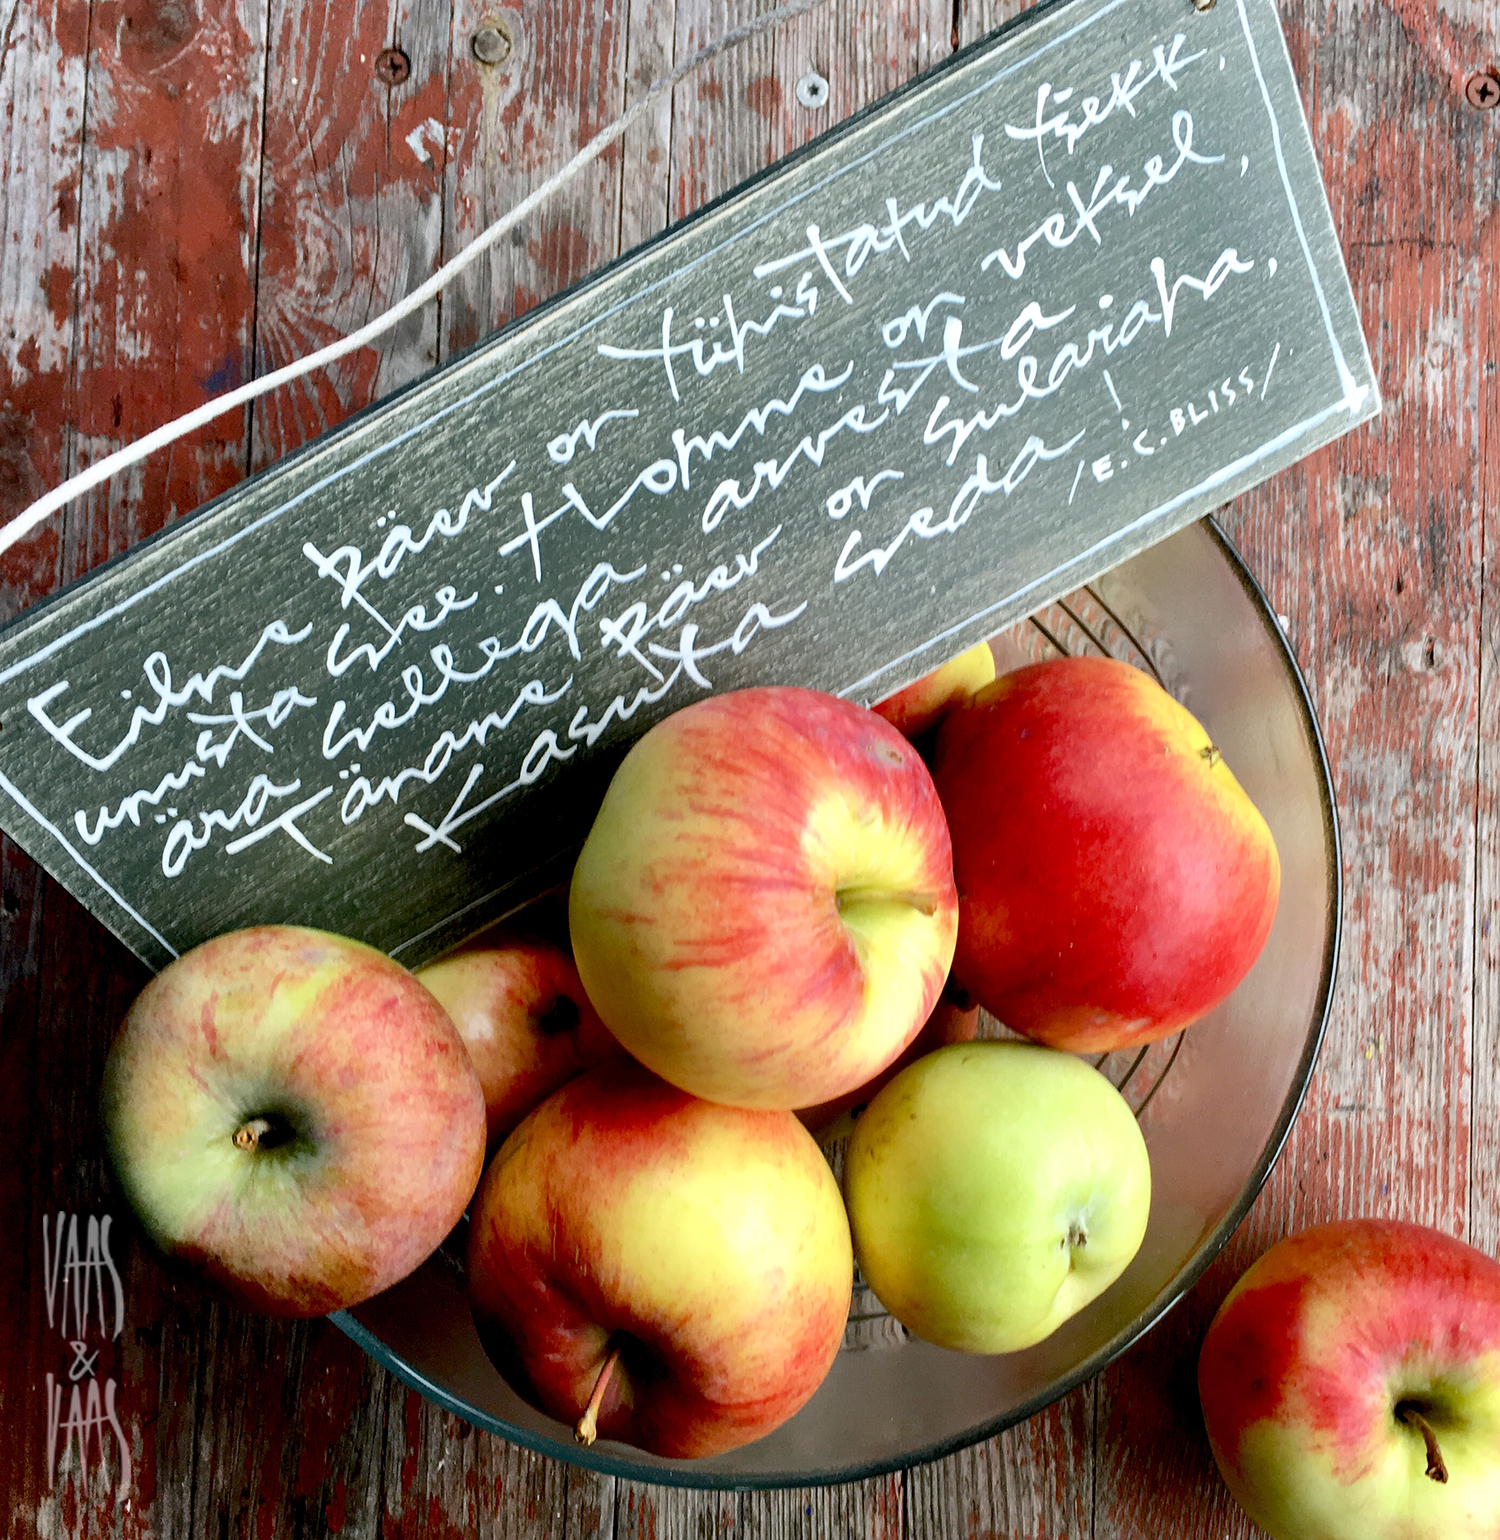 Eilne päev on tühistatud tšekk,
unusta see. Homne on veksel,
ära sellega arvesta
Tänane päev on sularaha,
Kasuta seda!
/E.C.BLISS/
VAAS
&
VAAS